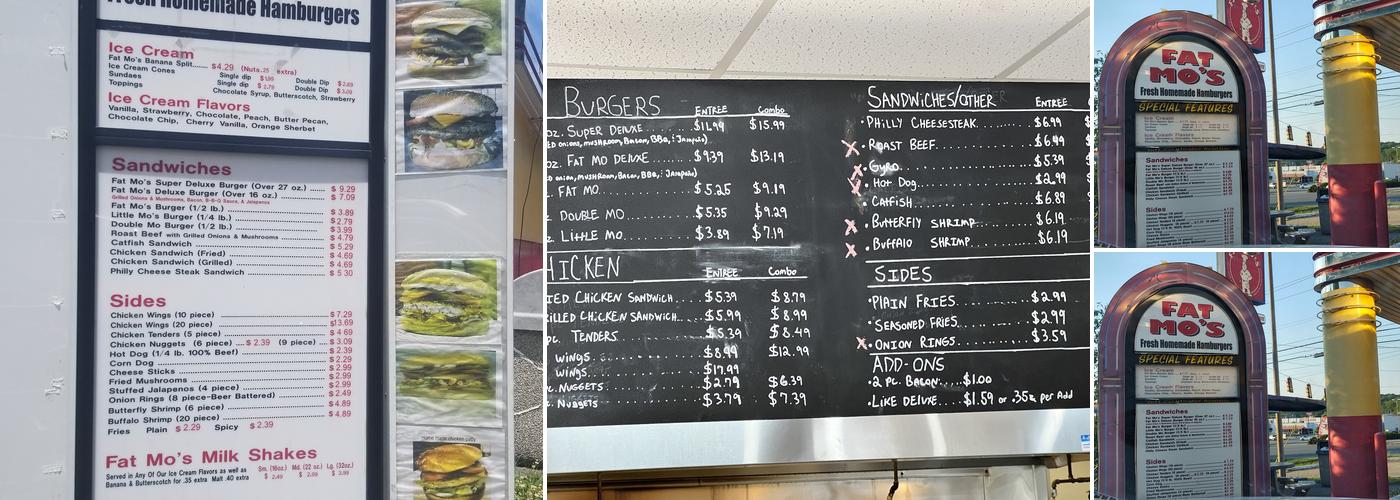 Fresh Homemade Hamburgers
Ice Cream
Fat Mo's Banana Split....... $4.29 (Nuts.25 extra)
Ice Cream Cones Single dip $1.99 Double Dip $2.69
Sundaes Single dip $2.79 Double Dip $3.59
Toppings Chocolate Syrup, Butterscotch, Strawberry
Ice Cream Flavors
Vanilla, Strawberry, Chocolate, Peach, Butter Pecan,
Chocolate Chip, Cherry Vanilla, Orange Sherbet
Sandwiches
Fat Mo's Super Deluxe Burger (Over 27 oz.) ...... $ 9.29
Fat Mo's Deluxe Burger (Over 16 oz.) ...... $ 7.09
Grilled Onions & Mushrooms, Bacon, B-B-Q Sauce, & Jalapenos
Fat Mo's Burger (1/2 lb.) ...... $ 3.89
Little Mo's Burger (1/4 lb.) ...... $ 2.79
Double Mo Burger (1/2 lb.) ...... $ 3.99
Roast Beef with Grilled Onions & Mushrooms ...... $ 4.79
Catfish Sandwich ...... $ 5.29
Chicken Sandwich (Fried) ...... $ 4.69
Chicken Sandwich (Grilled) ...... $ 4.69
Philly Cheese Steak Sandwich ...... $ 5 30
Sides
Chicken Wings (10 piece) ...... $ 7.29
Chicken Wings (20 piece) ...... $13.69
Chicken Tenders (5 piece) ...... $ 4.69
Chicken Nuggets (6 piece) .... $ 2.39 (9 piece) .... $ 3.09
Hot Dog (1/4 lb. 100% Beef) ...... $ 2.39
Corn Dog ...... $ 2.29
Cheese Sticks ...... $ 2.99
Fried Mushrooms ...... $ 2.99
Stuffed Jalapenos (4 piece) ...... $ 2.99
Onion Rings (8 piece-Beer Battered) ...... $ 2.49
Butterfly Shrimp (6 piece) ...... $ 4.89
Buffalo Shrimp (20 piece) ...... $ 4.89
Fries Plain $ 2.29 Spicy $ 2.39
Fat Mo's Milk Shakes
Served in Any Of Our Ice Cream Flavors as well as Sm. (16oz.) Md. (22 oz.) Lg. (32oz.)
Banana & Butterscotch for .35 extra Malt .40 extra $ 2.49 $ 2.99 $ 3.99
Home made chicken patty
BURGERS ENTREE Combo
oz. SUPER DELUXE ...... $11.99 $15.99
ED onions, mushroom, Bacon, BBQ, & Jalapeño)
oz. FAT MO DELUXE ...... $9.39 $13.19
D onion, mushroom, Bacon, BBQ, & Jalapeño)
FAT MO ...... $5.25 $9.19
DOUBLE MO ...... $5.35 $9.29
z. LITTLE MO ...... $3.89 $7.19
HICKEN ENTREE Combo
IED CHICKEN SANDWICH.... $5.39 $8.79
RILLED CHICKEN SANDWICH.... $5.99 $8.99
pc. TENDERS ...... $5.39 $8.49
WINGS ...... $8.99 $12.99
WINGS ...... $17.99
c. NUGGETS ...... $2.79 $6.39
c. NUGGETS ...... $3.79 $7.39
SANDWICHES/OTHER ENTREE
• PHILLY CHEESESTEAK ...... $6.99
• ROAST BEEF ...... $6.49
• Gyro ...... $5.39
• Hot Dog ...... $2.99
• Catfish ...... $6.89
• BUTTERFLY SHRIMP ...... $6.19
• BUFFALO SHRIMP ...... $6.19
SIDES
• PLAIN FRIES ...... $2.99
• SEASONED FRIES ...... $2.99
• ONION RINGS ...... $3.59
ADD-ONS
• 2 PC. BACON.....$1.00
• LIKE DELUXE.....$1.59 or .35¢ per Add
FAT
MO'S
Fresh Homemade Hamburgers
SPECIAL FEATURES
Ice Cream
Ice Cream Flavors
Sandwiches
Sides
FAT
MO'S
Fresh Homemade Hamburgers
SPECIAL FEATURES
Ice Cream
Ice Cream Flavors
Sandwiches
Sides